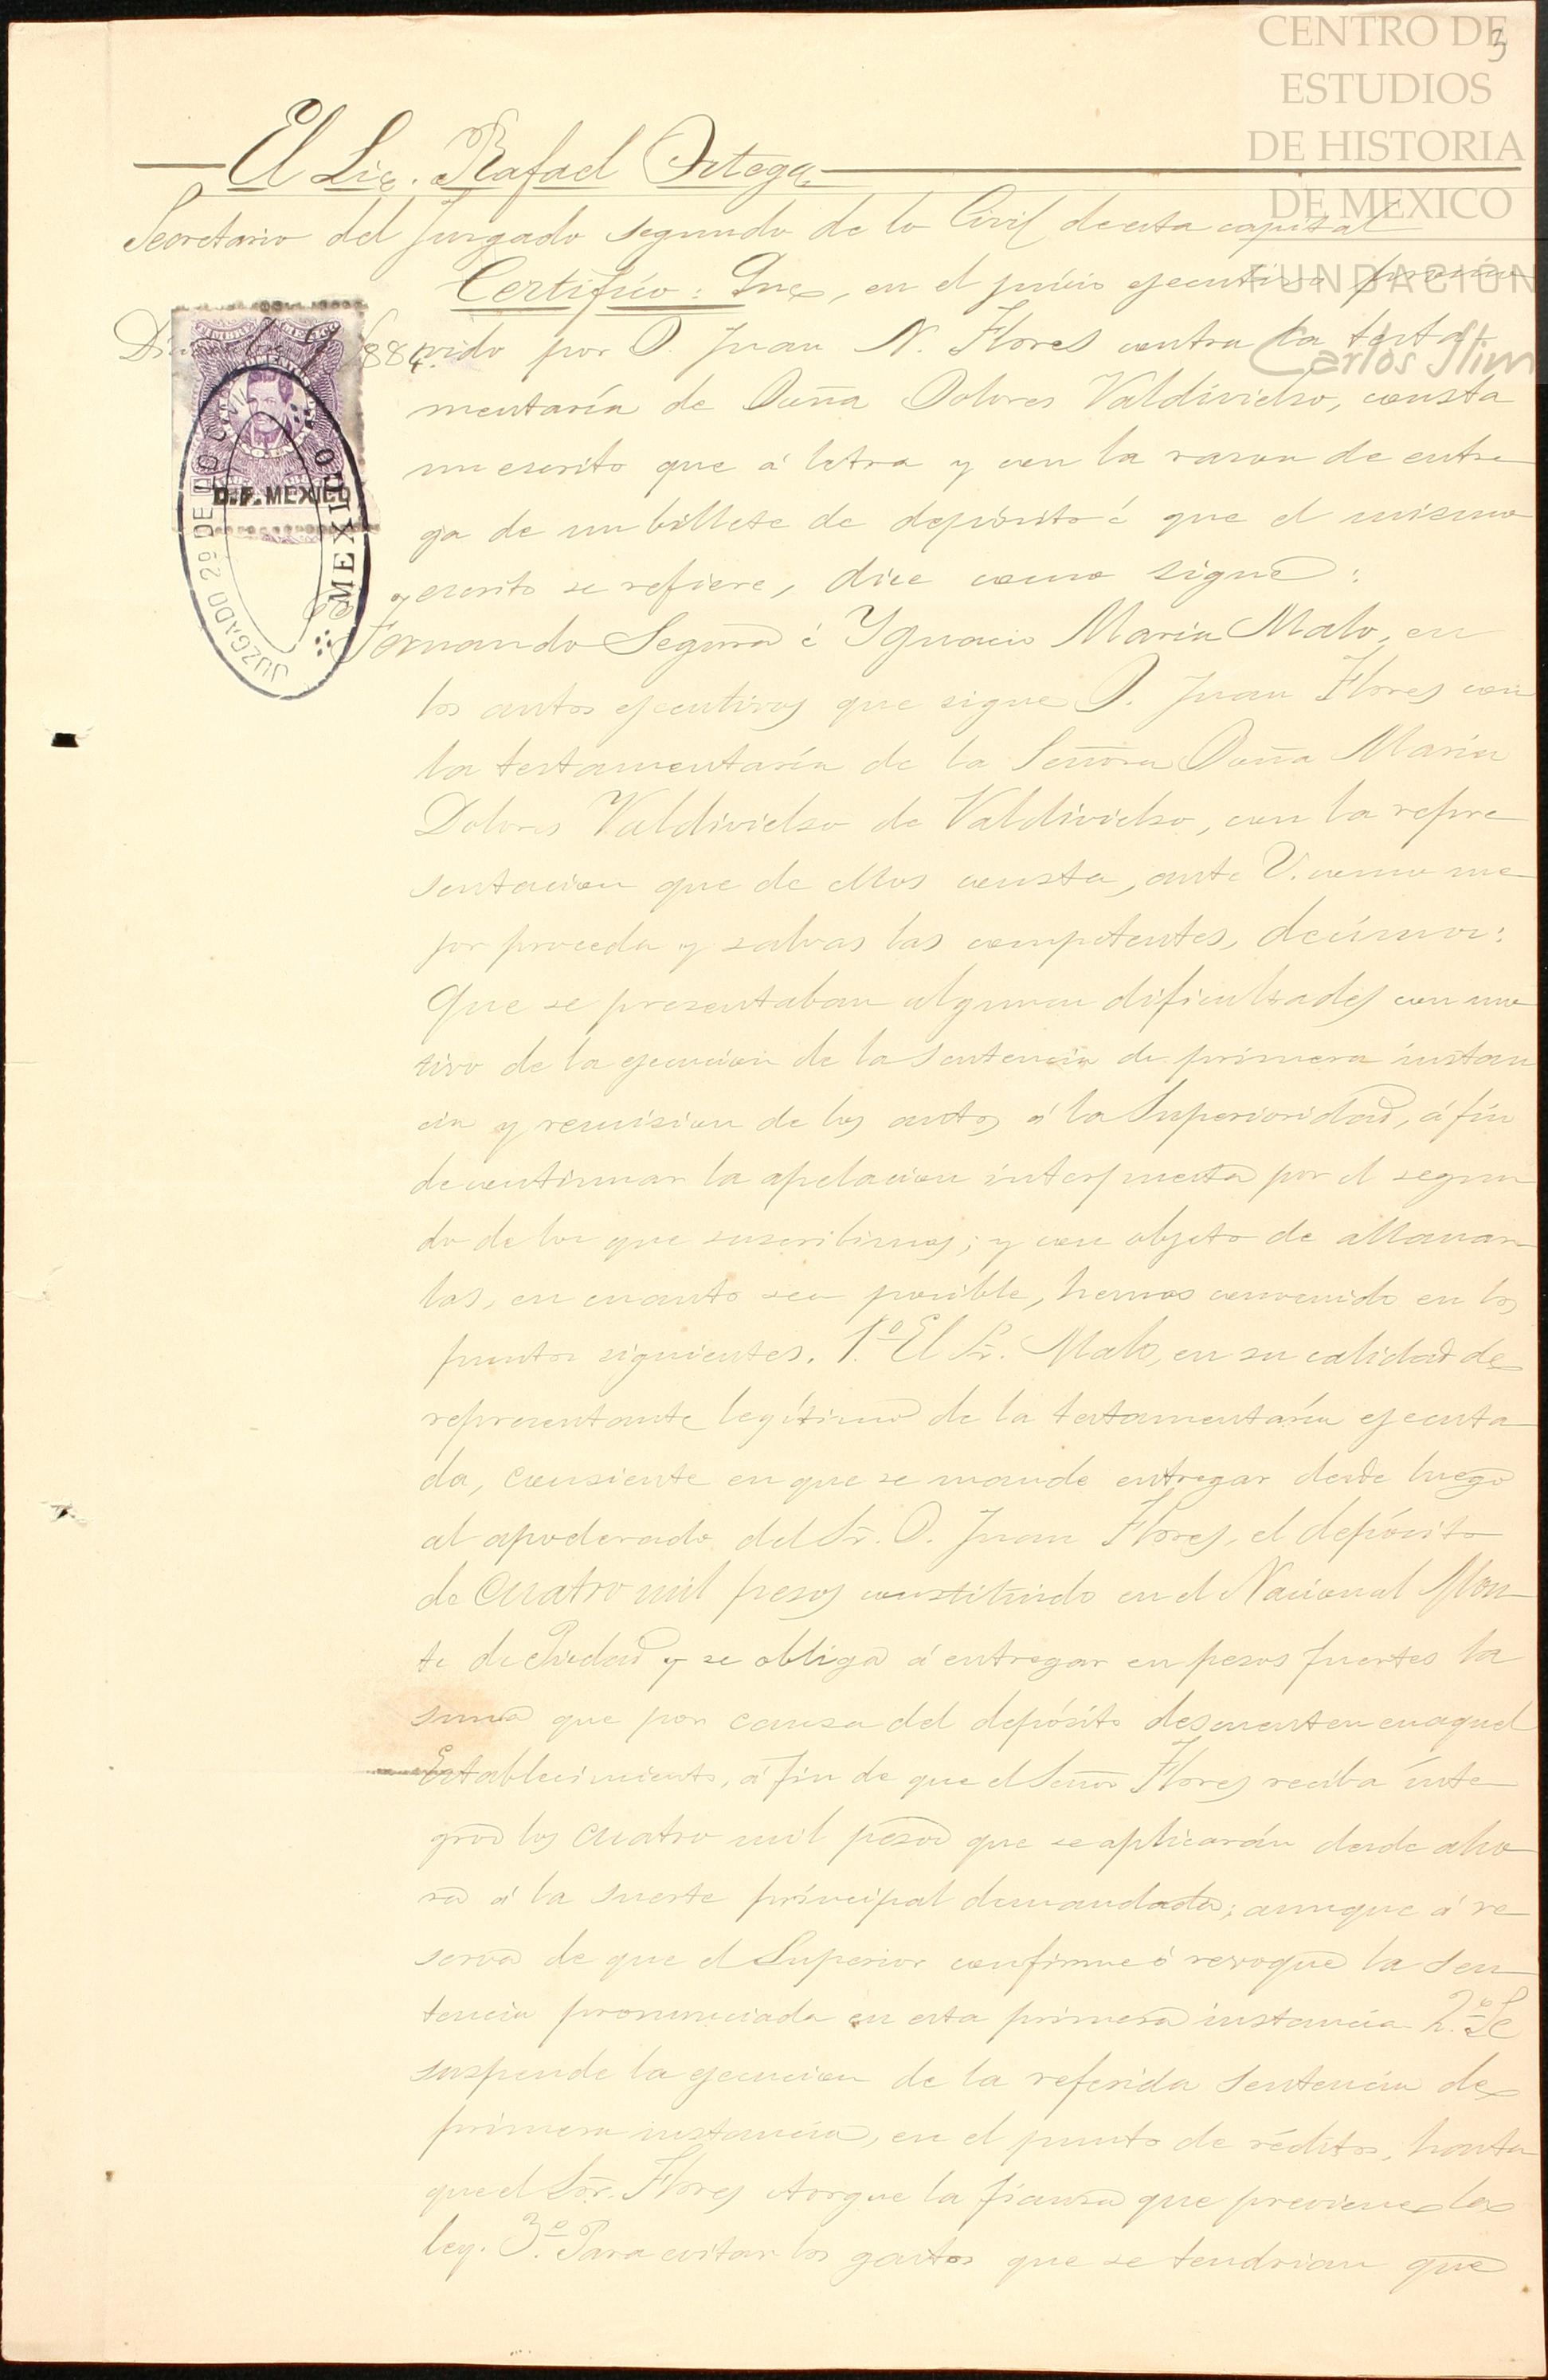 CENTRO DE
ESTUDIOS
DE HISTORIA
DE MEXICO
FUNDACIÓN
Carlos Slim
3
El Lic. Rafael Ortega
Secretario del Juzgado segundo de lo Civil de esta capital
Certifico: Que, en el juicio ejecutivo promo
vido por D. Juan N. Flores contra la testa
mentaría de Doña Dolores Valdivielso, consta
un escrito que á letra y con la razon de entre
ga de un billete de depósito á que el mismo
escrito se refiere, dice como sigue:
Fernando Segura é Ygnacio María Malo, en
los autos ejecutivos que sigue D. Juan Flores con
la testamentaría de la Señora Doña María
Dolores Valdivielso de Valdivielso, con la repre
sentacion que de ellos consta, ante V. como me
jor proceda y salvas las competentes, decimos:
Que se presentaban algunas dificultades con mo
tivo de la ejecucion de la sentencia de primera instan
cia y remision de los autos á la Superioridad, á fin
de continuar la apelacion interpuesta por el segun
do de los que suscribimos; y con objeto de allanar
las, en cuanto sea posible, hemos convenido en los
puntos siguientes. 1º. El Sr. Malo, en su calidad de
representante legítimo de la testamentaría ejecuta
da, consiente en que se mande entregar desde luego
al apoderado del Sr. D. Juan Flores, el depósito
de cuatro mil pesos constituido en el Nacional Mon
te de Piedad y se obliga á entregar en pesos fuertes la
suma que por causa del depósito descuenten en aquel
Establecimiento, á fin de que el Señor Flores reciba ínte
gros los cuatro mil pesos que se aplicarán desde aho
ra á la suerte principal demandada; aunque á re
serva de que el Superior confirme ó revoque la sen
tencia pronunciada en esta primera instancia 2º. Se
suspende la ejecucion de la referida sentencia de
primera instancia, en el punto de réditos, hasta
que el Sor. Flores otorgue la fianza que previene la
ley. 3º. Para evitar los gastos que se tendrian que
D.F. MEXICO
JUZGADO 2º DE LO CIVIL
MEXICO